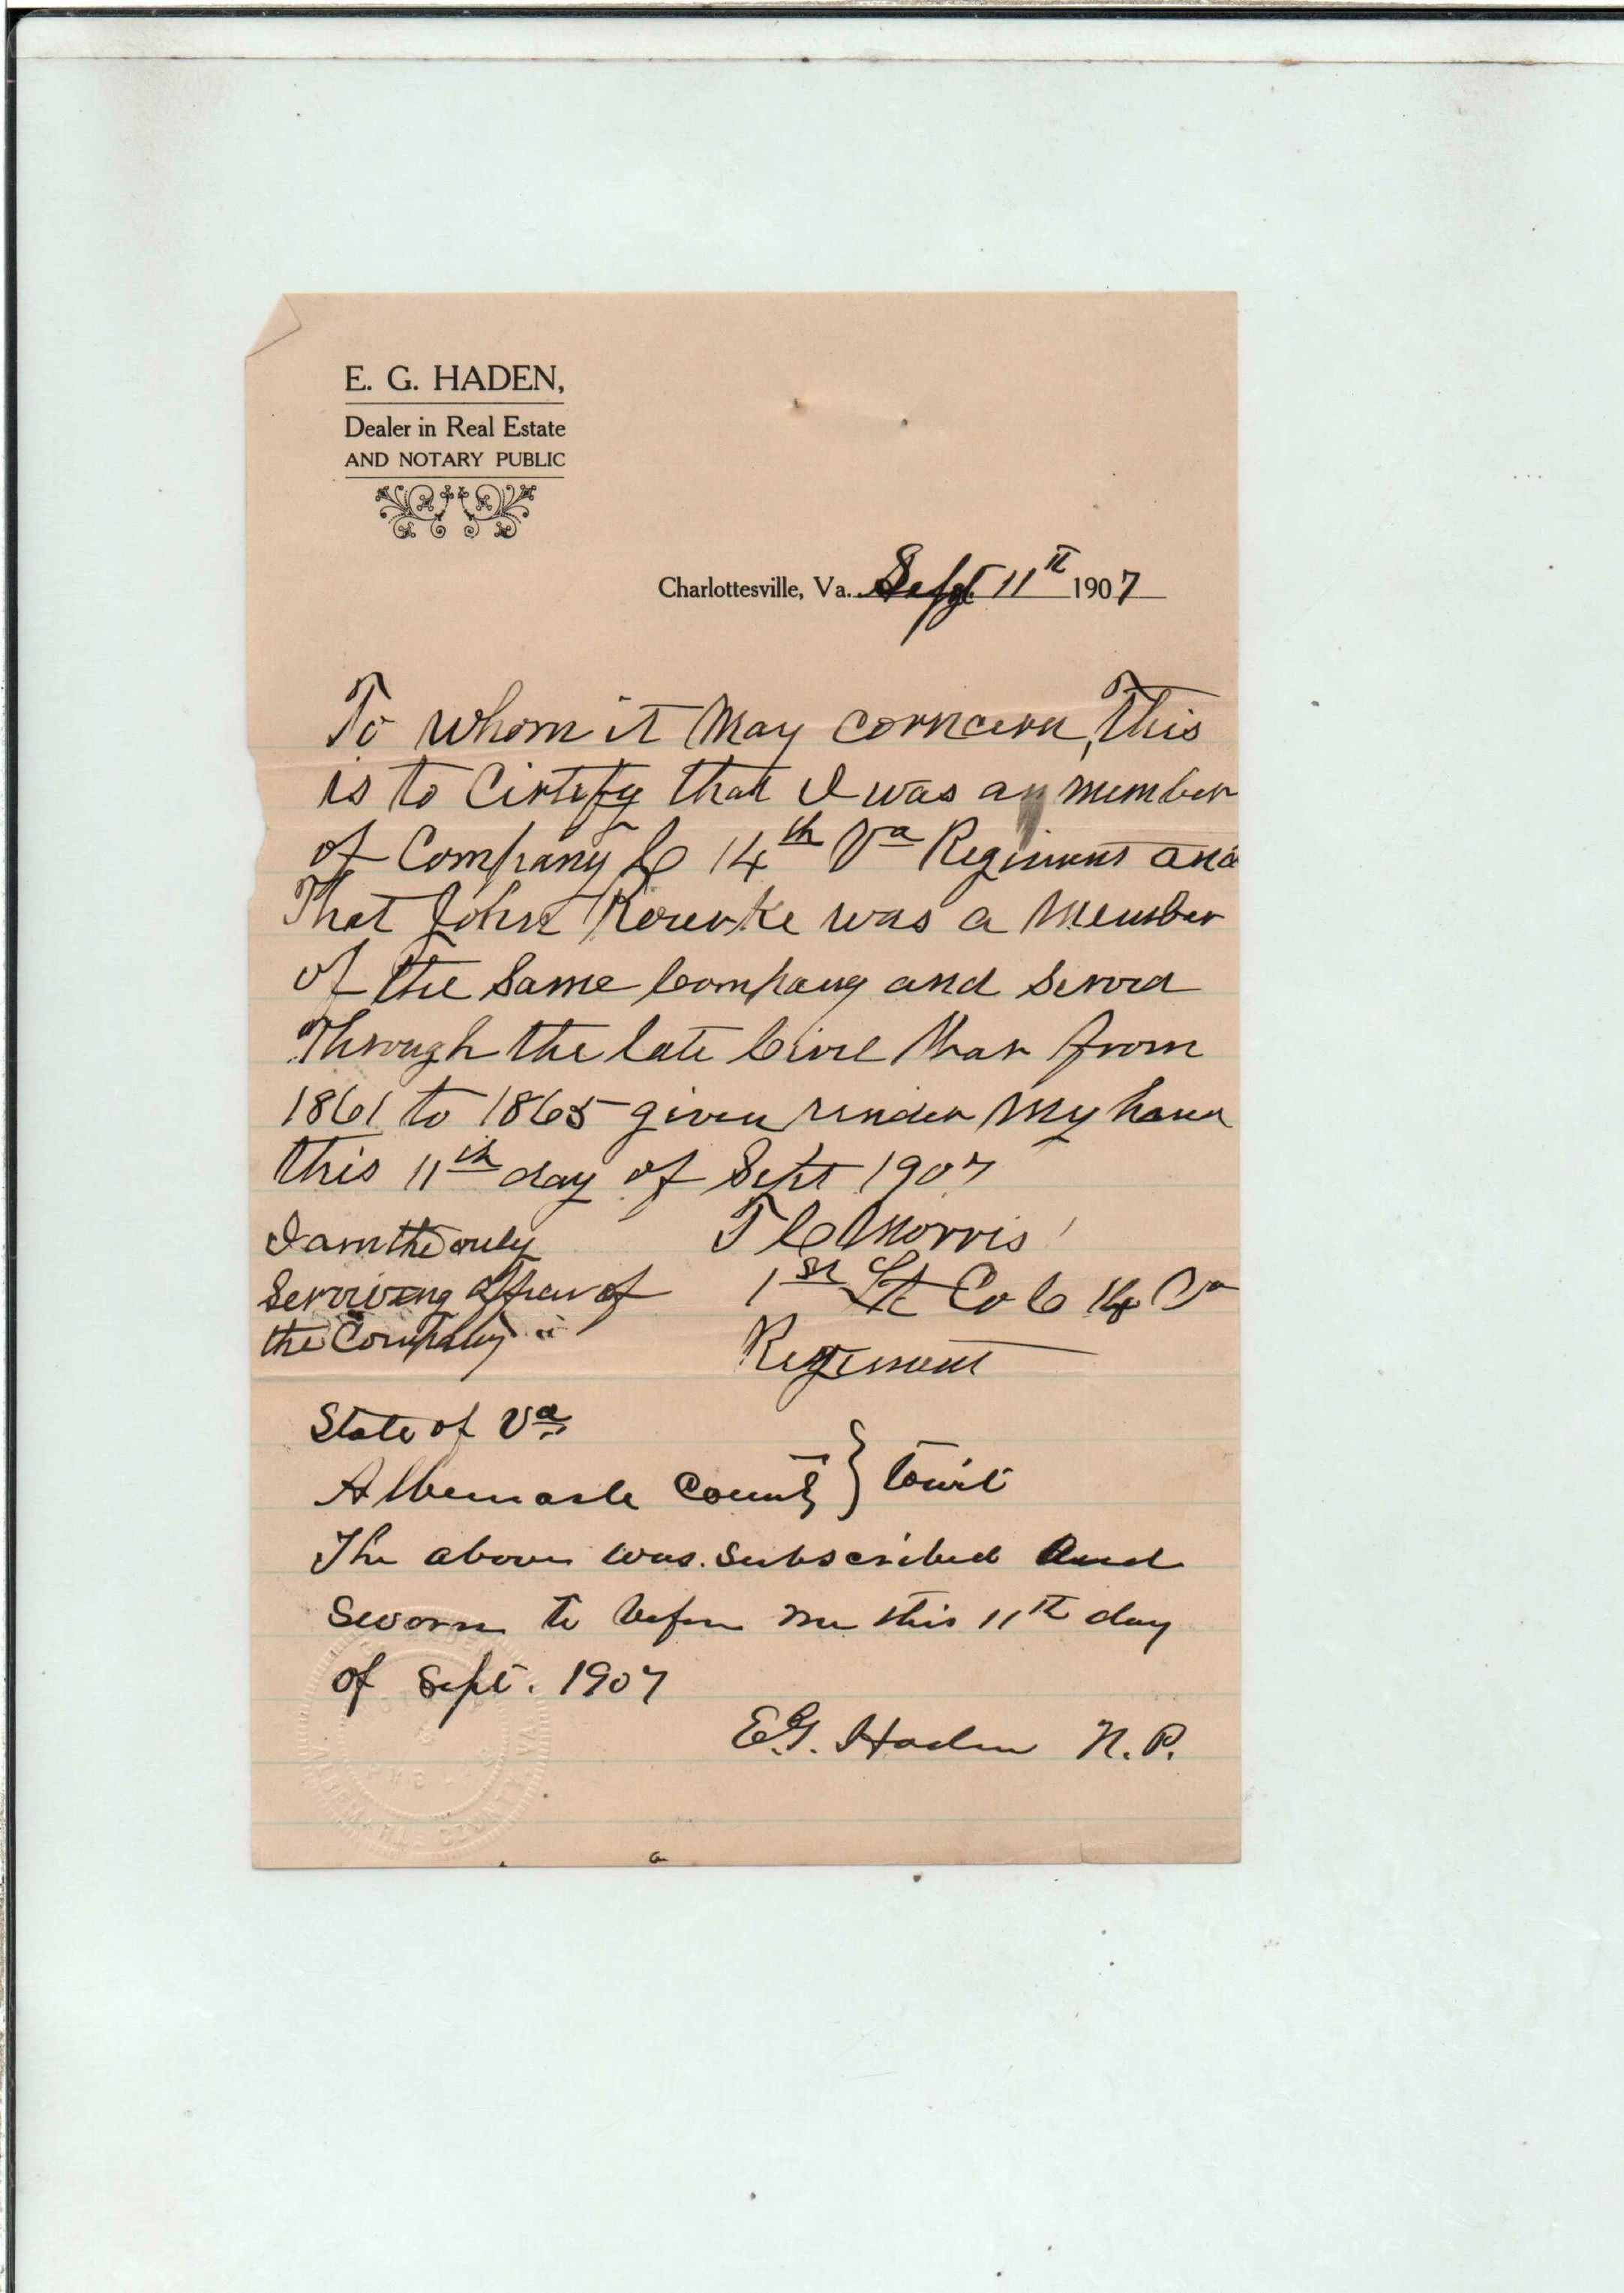 E. G. HADEN,
Dealer in Real Estate
AND NOTARY PUBLIC
Charlottesville, Va. Sept. 11th 1907
To whom it May Conncern, This
is to Cirtify that I was a member
of Company C 14th Va Regiment and
That John Rourke was a Member
of the Same Company and Servd
Through the late Civil War from
1861 to 1865 given under My hand
this 11th day of Sept 1907
I am the only
Serviving officer of
the Company
T C Morris
1st Lt Co C 14 Va
Regiment
State of Va
Albemarle County } towit
The above was subscribed and
Sworn to before me this 11th day
of Sept. 1907
E.G. Haden N.P.
ALBEMARLE COUNTY, VA.